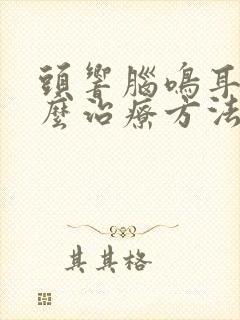 頭響腦鳴耳
麼治療方法
其其格